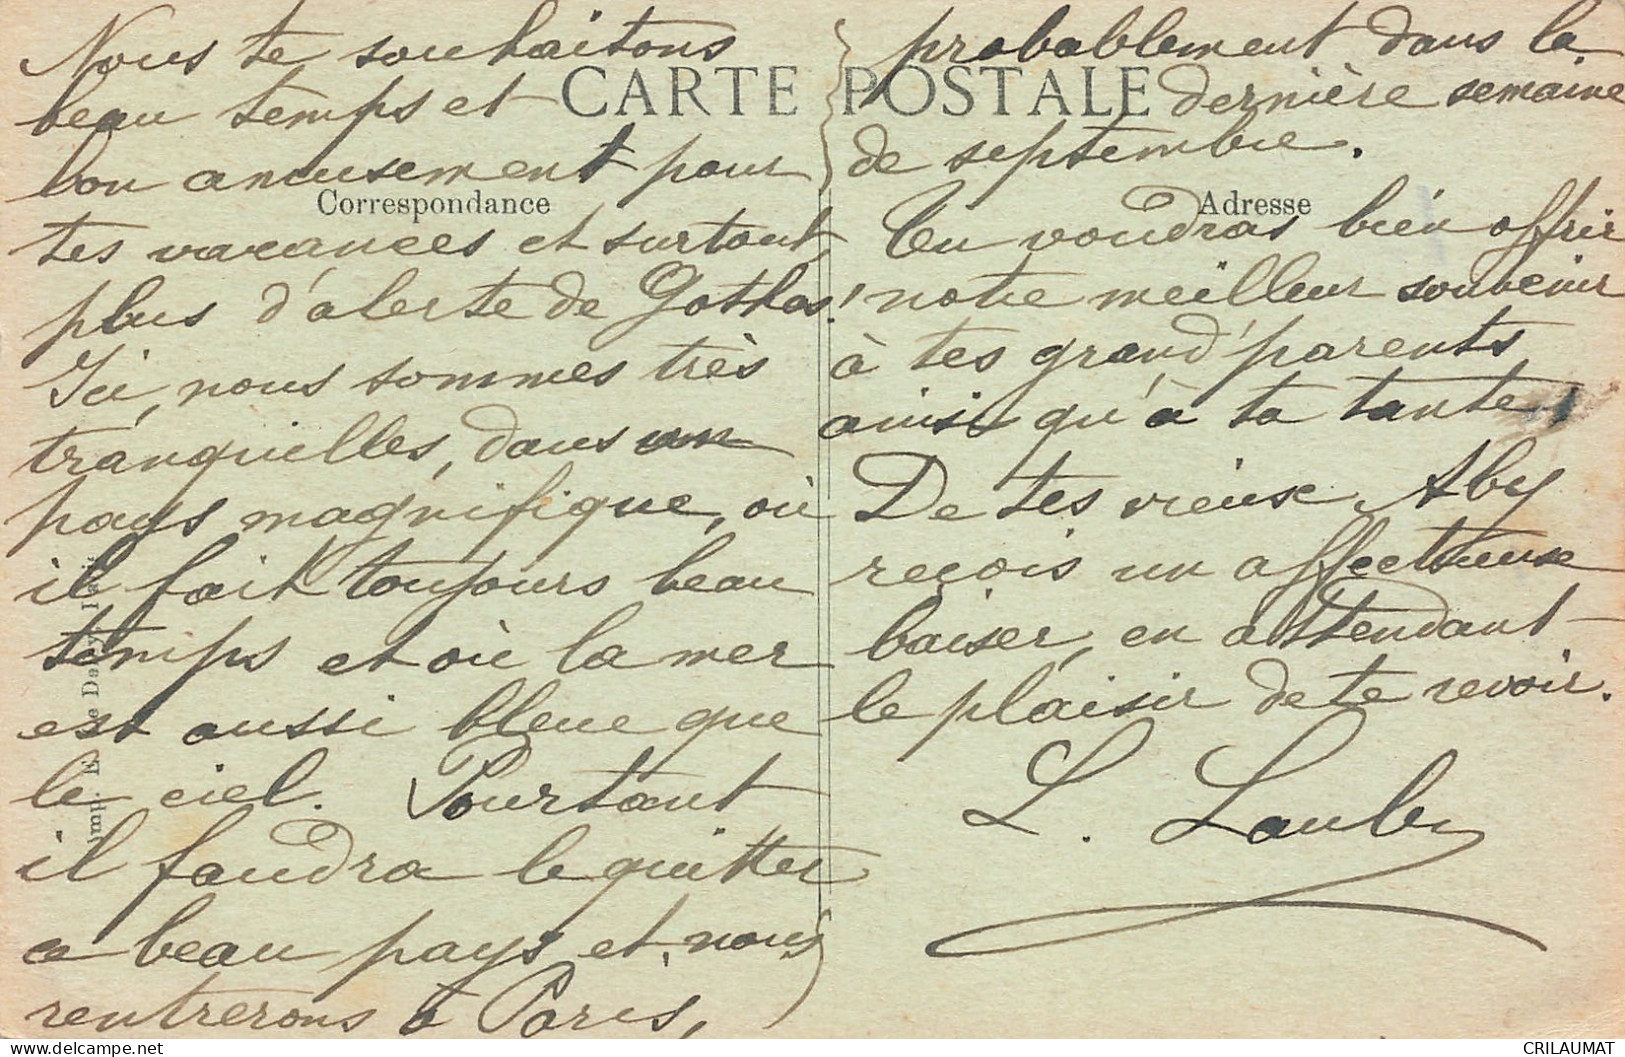 Nous te souhaitons
beau temps et
bon amusement pour
tes vacances et surtout,
plus d'alerte de Gothas!
Ici, nous sommes très
tranquilles, dans un
pays magnifique, où
il fait toujours beau
temps et où la mer
est aussi bleue que
le ciel. Pourtant
il faudra le quitter
ce beau pays et nous
rentrerons à Paris,
probablement dans la
dernière semaine
de septembre.
Tu voudras bien offrir
notre meilleur souvenir
à tes grand'parents
ainsi qu'à ta tante,
De tes vieux Aby
reçois un affectueuse
baiser, en attendant
le plaisir de te revoir.
L. Lauby
CARTE POSTALE
Correspondance
Adresse
Imp. E. Le
CRILAUMAT